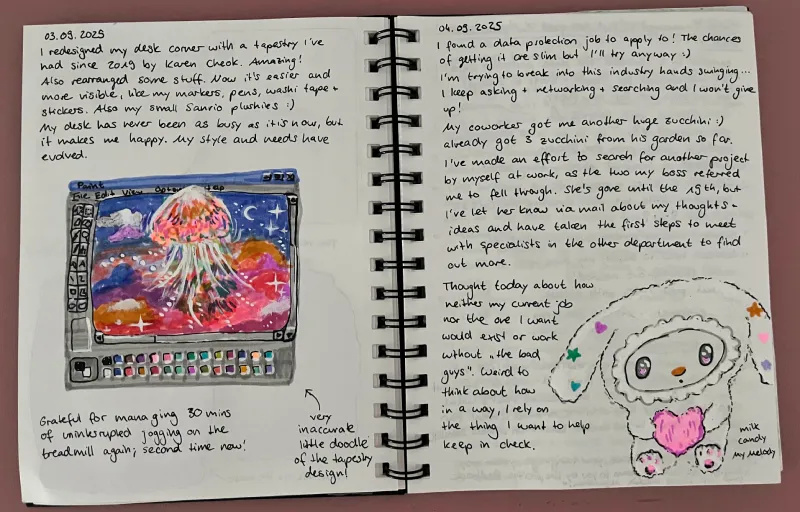 03.09.2025
I redesigned my desk corner with a tapestry I've
had since 2019 by Karen Cheok. Amazing!
Also rearranged some stuff. Now it's easier and
more visible, like my markers, pens, washi tape +
stickers. Also my small Sanrio plushies :)
My desk has never been as busy as it is now, but
it makes me happy. My style and needs have
evolved.
Paint
File Edit View Help
Grateful for managing 30 mins
of uninterrupted jogging on the
treadmill again; second time now!
very
inaccurate
little doodle
of the tapestry
design!
04.09.2025
I found a data protection job to apply to! The chances
of getting it are slim but I'll try anyway :)
I'm trying to break into this industry hands swinging...
I keep asking + networking + searching and I won't give
up!
My coworker got me another huge zucchini :)
already got 3 zucchini from his garden so far.
I've made an effort to search for another project
by myself at work, as the two my boss referred
me to fell through. She's gone until the 19th, but
I've let her know via mail about my thoughts +
ideas and have taken the first steps to meet
with specialists in the other department to find
out more.
Thought today about how
neither my current job
nor the one I want
would exist or work
without „the bad
guys". Weird to
think about how
in a way, I rely on
the thing I want to help
keep in check.
milk
candy
my melody